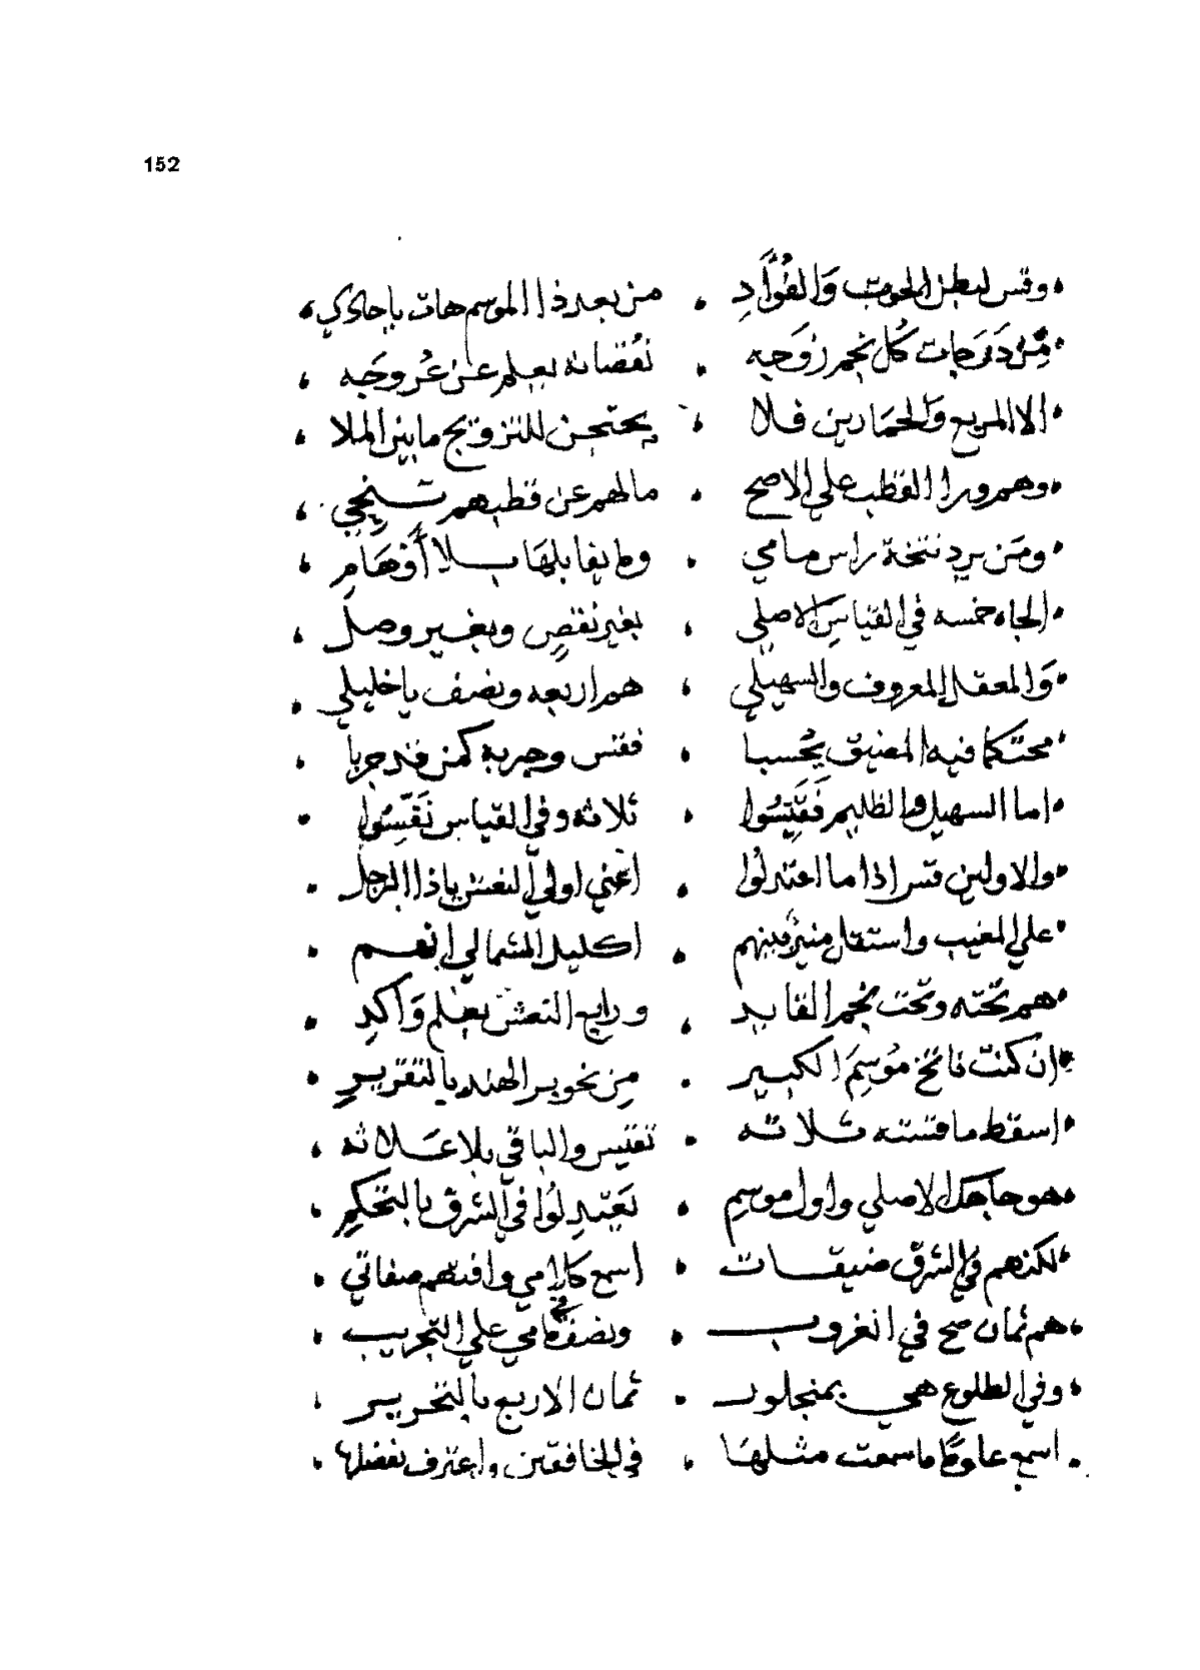 152
وقس لبطن الحوت وَالفُؤَّادِ • من بعد ذا الموسم هات ياحادي
مِّنْ دَرَجات كُل نجم زوَجه • نُقصانه يعلم عن عُروجَه
الا المربع وَالحمَارين فلا • يحتجن للتزويج مابين الملا
وهم ورا القطب علي الاصح • مالهم عن قطبهم
ومَن يرد نتخة راس مامي • وما يقابلهَا بلا أوهَامِ
الجاه خمسه في القياسِ الاصلي • بغير نقصٍ وبغير وصل
وَالمعقل المعروف والسهيلي • هم اربعه ونصف ياخليلي
محتكما فيه المضيق يحُسبا • فقس وجربه كمن قد جربا
اما السهيل والظليم فَقَيِّسُوا • ثلاثه وفي القياس نَفّسُوا
والاولين قس اذا ما اعتدلُوا • اعني اولي النعش ياذا الرجل
علي المغيب واستقل منيرُ بينهم • اكليل الشمالي انعم
هم تحته وتحت نجم القايد • ورابع النعش بعلم وَاكدِ
ان كنت ناتخ مَوُسِمَ الكبير • مِن نحو بر الهند بالتقريرِ
اسقط ما قسته ثلاثه • تقيس والباقي بلا علاثه
هو جاهك الاصلي واول موسمِ • تَعتدِلُوا في الشرق بالتحكمِ
لكنهم في الشرق ضيقات • اسمع كلامي وافتهم صفاتي
هم ثمان صح في الغروب • ونصف علي التجريب
وفي الطلوع هي بمنجلور • ثمان الاربع بالتحرير
اسمع علومًا ما سمعت مثلهَا • في الخافقين واعترف بفضلها